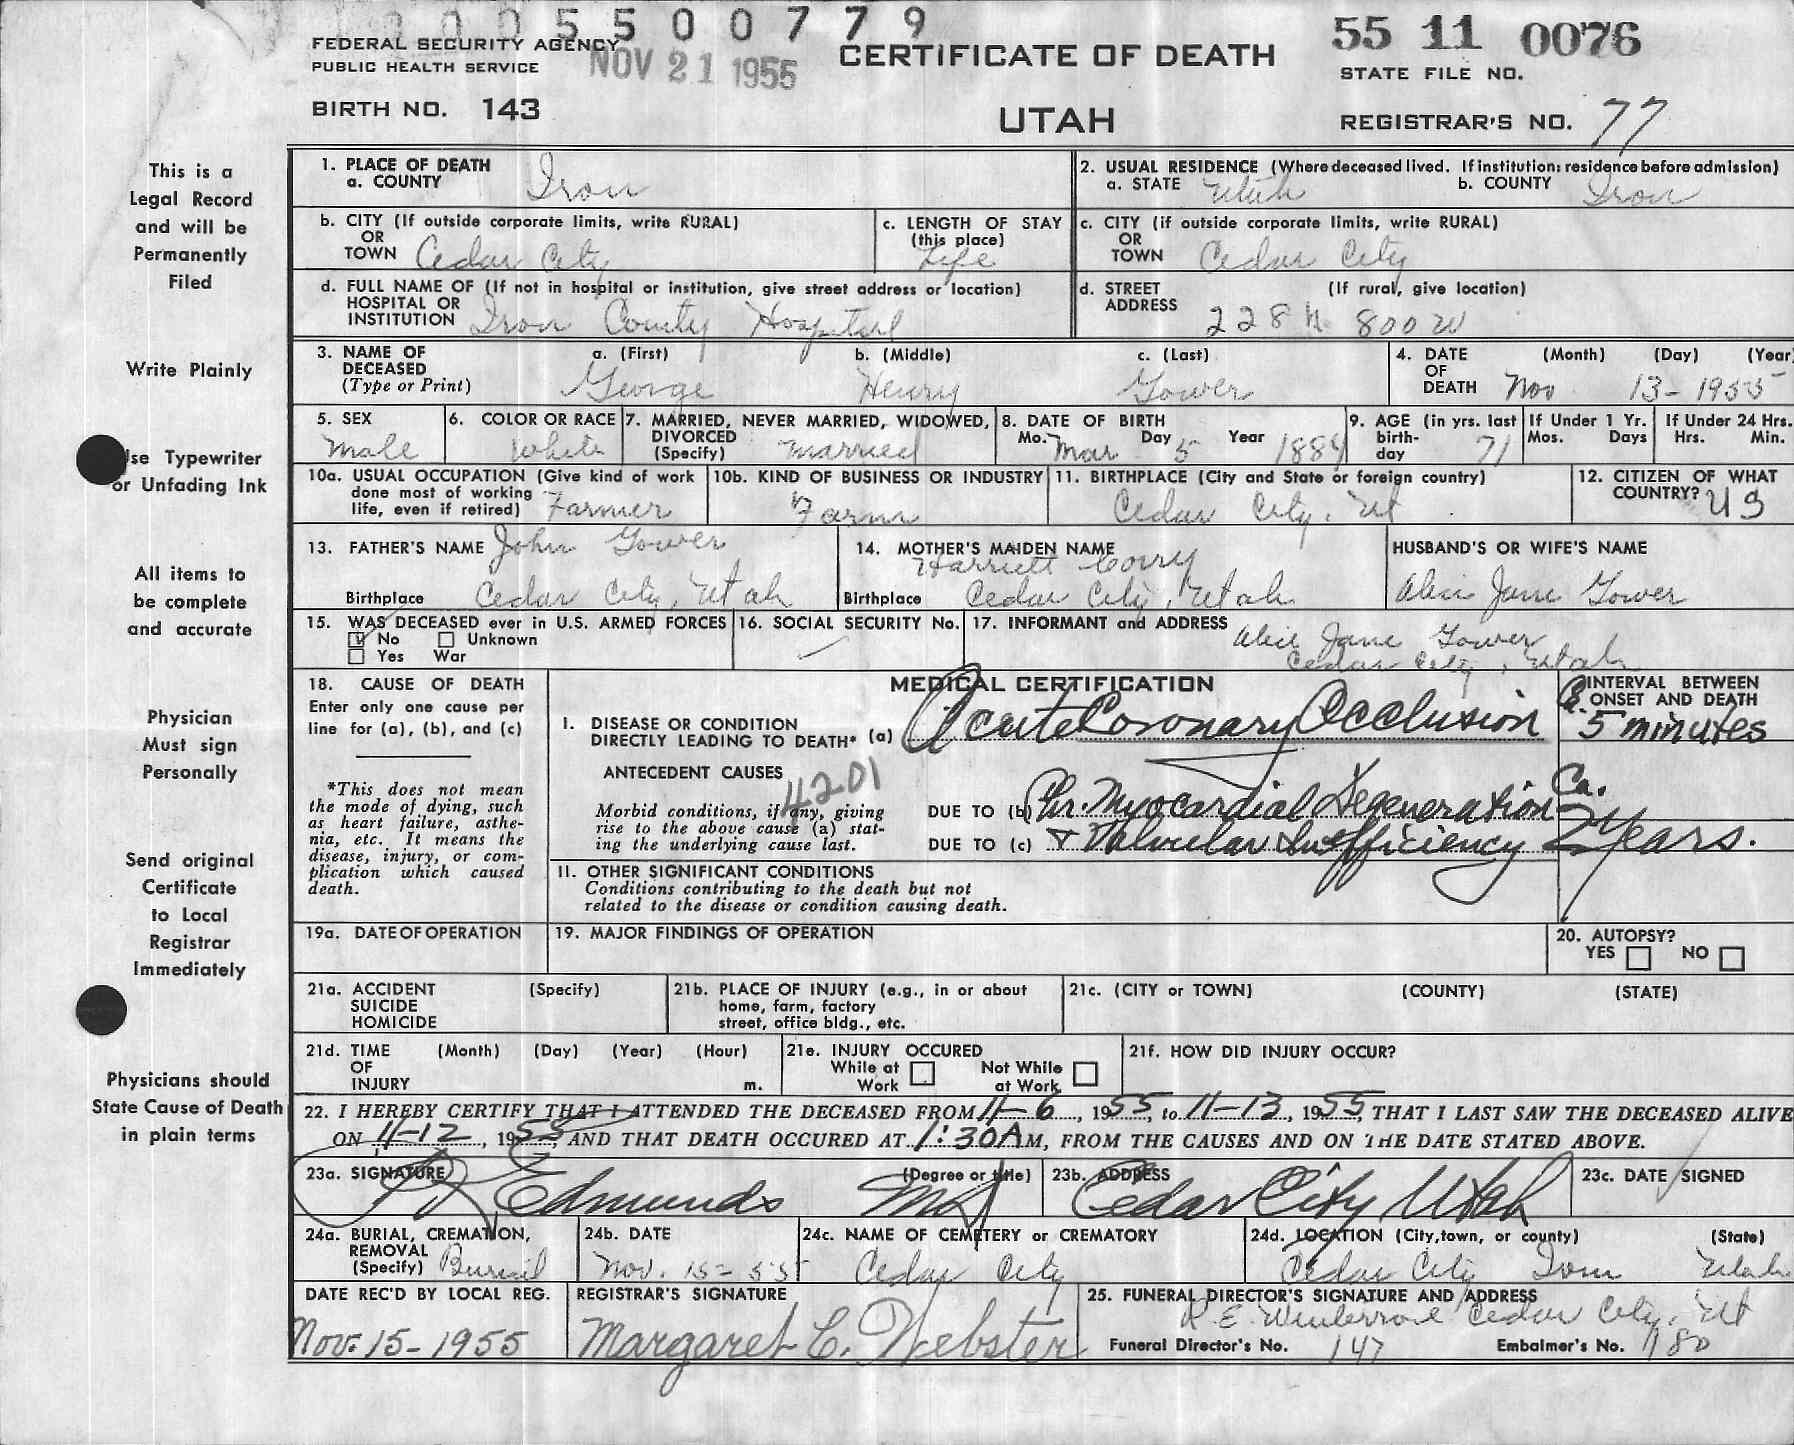 2005500779
FEDERAL SECURITY AGENCY
PUBLIC HEALTH SERVICE
NOV 21 1955
CERTIFICATE OF DEATH
55 11 0076
STATE FILE NO.
BIRTH NO. 143
UTAH
REGISTRAR'S NO. 77
This is a
Legal Record
and will be
Permanently
Filed
Write Plainly
Use Typewriter
or Unfading Ink
All items to
be complete
and accurate
Physician
Must sign
Personally
Send original
Certificate
to Local
Registrar
Immediately
Physicians should
State Cause of Death
in plain terms
1. PLACE OF DEATH
a. COUNTY Iron
2. USUAL RESIDENCE (Where deceased lived. If institution: residence before admission)
a. STATE Utah b. COUNTY Iron
b. CITY (If outside corporate limits, write RURAL)
OR
TOWN Cedar City
c. LENGTH OF STAY
(this place)
Life
c. CITY (if outside corporate limits, write RURAL)
OR
TOWN Cedar City
d. FULL NAME OF (If not in hospital or institution, give street address or location)
HOSPITAL OR
INSTITUTION Iron County Hospital
d. STREET (If rural, give location)
ADDRESS 228 N. 800 W
3. NAME OF a. (First) b. (Middle) c. (Last)
DECEASED
(Type or Print) George Henry Gower
4. DATE (Month) (Day) (Year)
OF
DEATH Nov 13-1955
5. SEX
Male
6. COLOR OR RACE
White
7. MARRIED, NEVER MARRIED, WIDOWED,
DIVORCED
(Specify) Married
8. DATE OF BIRTH
Mo. Mar Day 5 Year 1884
9. AGE (in yrs. last
birth-
day 71
If Under 1 Yr.
Mos. Days
If Under 24 Hrs.
Hrs. Min.
10a. USUAL OCCUPATION (Give kind of work
done most of working
life, even if retired) Farmer
10b. KIND OF BUSINESS OR INDUSTRY
Farm
11. BIRTHPLACE (City and State or foreign country)
Cedar City, Ut
12. CITIZEN OF WHAT
COUNTRY? US
13. FATHER'S NAME John Gower
Birthplace Cedar City, Utah
14. MOTHER'S MAIDEN NAME
Harriett Corry
Birthplace Cedar City, Utah
HUSBAND'S OR WIFE'S NAME
Alice Jane Gower
15. WAS DECEASED ever in U.S. ARMED FORCES
No Unknown
Yes War
16. SOCIAL SECURITY No.
17. INFORMANT and ADDRESS Alice Jane Gower
Cedar City, Utah
18. CAUSE OF DEATH
Enter only one cause per
line for (a), (b), and (c)
*This does not mean
the mode of dying, such
as heart failure, asthe-
nia, etc. It means the
disease, injury, or com-
plication which caused
death.
MEDICAL CERTIFICATION
INTERVAL BETWEEN
ONSET AND DEATH
I. DISEASE OR CONDITION
DIRECTLY LEADING TO DEATH* (a) Acute Coronary Occlusion Ca. 5 minutes
ANTECEDENT CAUSES
4201
Morbid conditions, if any, giving
rise to the above cause (a) stat-
ing the underlying cause last.
DUE TO (b) Chr. Myocardial Degeneration Ca.
DUE TO (c) & Valvular Insufficiency 2 Years.
II. OTHER SIGNIFICANT CONDITIONS
Conditions contributing to the death but not
related to the disease or condition causing death.
19a. DATE OF OPERATION
19. MAJOR FINDINGS OF OPERATION
20. AUTOPSY?
YES NO
21a. ACCIDENT (Specify)
SUICIDE
HOMICIDE
21b. PLACE OF INJURY (e.g., in or about
home, farm, factory
street, office bldg., etc.
21c. (CITY or TOWN) (COUNTY) (STATE)
21d. TIME (Month) (Day) (Year) (Hour)
OF
INJURY m.
21e. INJURY OCCURED
While at Not While
Work at Work
21f. HOW DID INJURY OCCUR?
22. I HEREBY CERTIFY THAT I ATTENDED THE DECEASED FROM 11-6, 1955, to 11-13, 1955, THAT I LAST SAW THE DECEASED ALIVE
ON 11-12, 1955, AND THAT DEATH OCCURED AT 1:30 A M, FROM THE CAUSES AND ON THE DATE STATED ABOVE.
23a. SIGNATURE (Degree or title)
Edmunds MD
23b. ADDRESS
Cedar City Utah
23c. DATE SIGNED
24a. BURIAL, CREMATION,
REMOVAL
(Specify) Burial
24b. DATE
Nov. 15-55
24c. NAME OF CEMETERY or CREMATORY
Cedar City
24d. LOCATION (City, town, or county) (State)
Cedar City Iron Utah
DATE REC'D BY LOCAL REG.
Nov. 15-1955
REGISTRAR'S SIGNATURE
Margaret C. Webster
25. FUNERAL DIRECTOR'S SIGNATURE AND ADDRESS
Cedar City, Ut
Funeral Director's No. 147 Embalmer's No. 1180